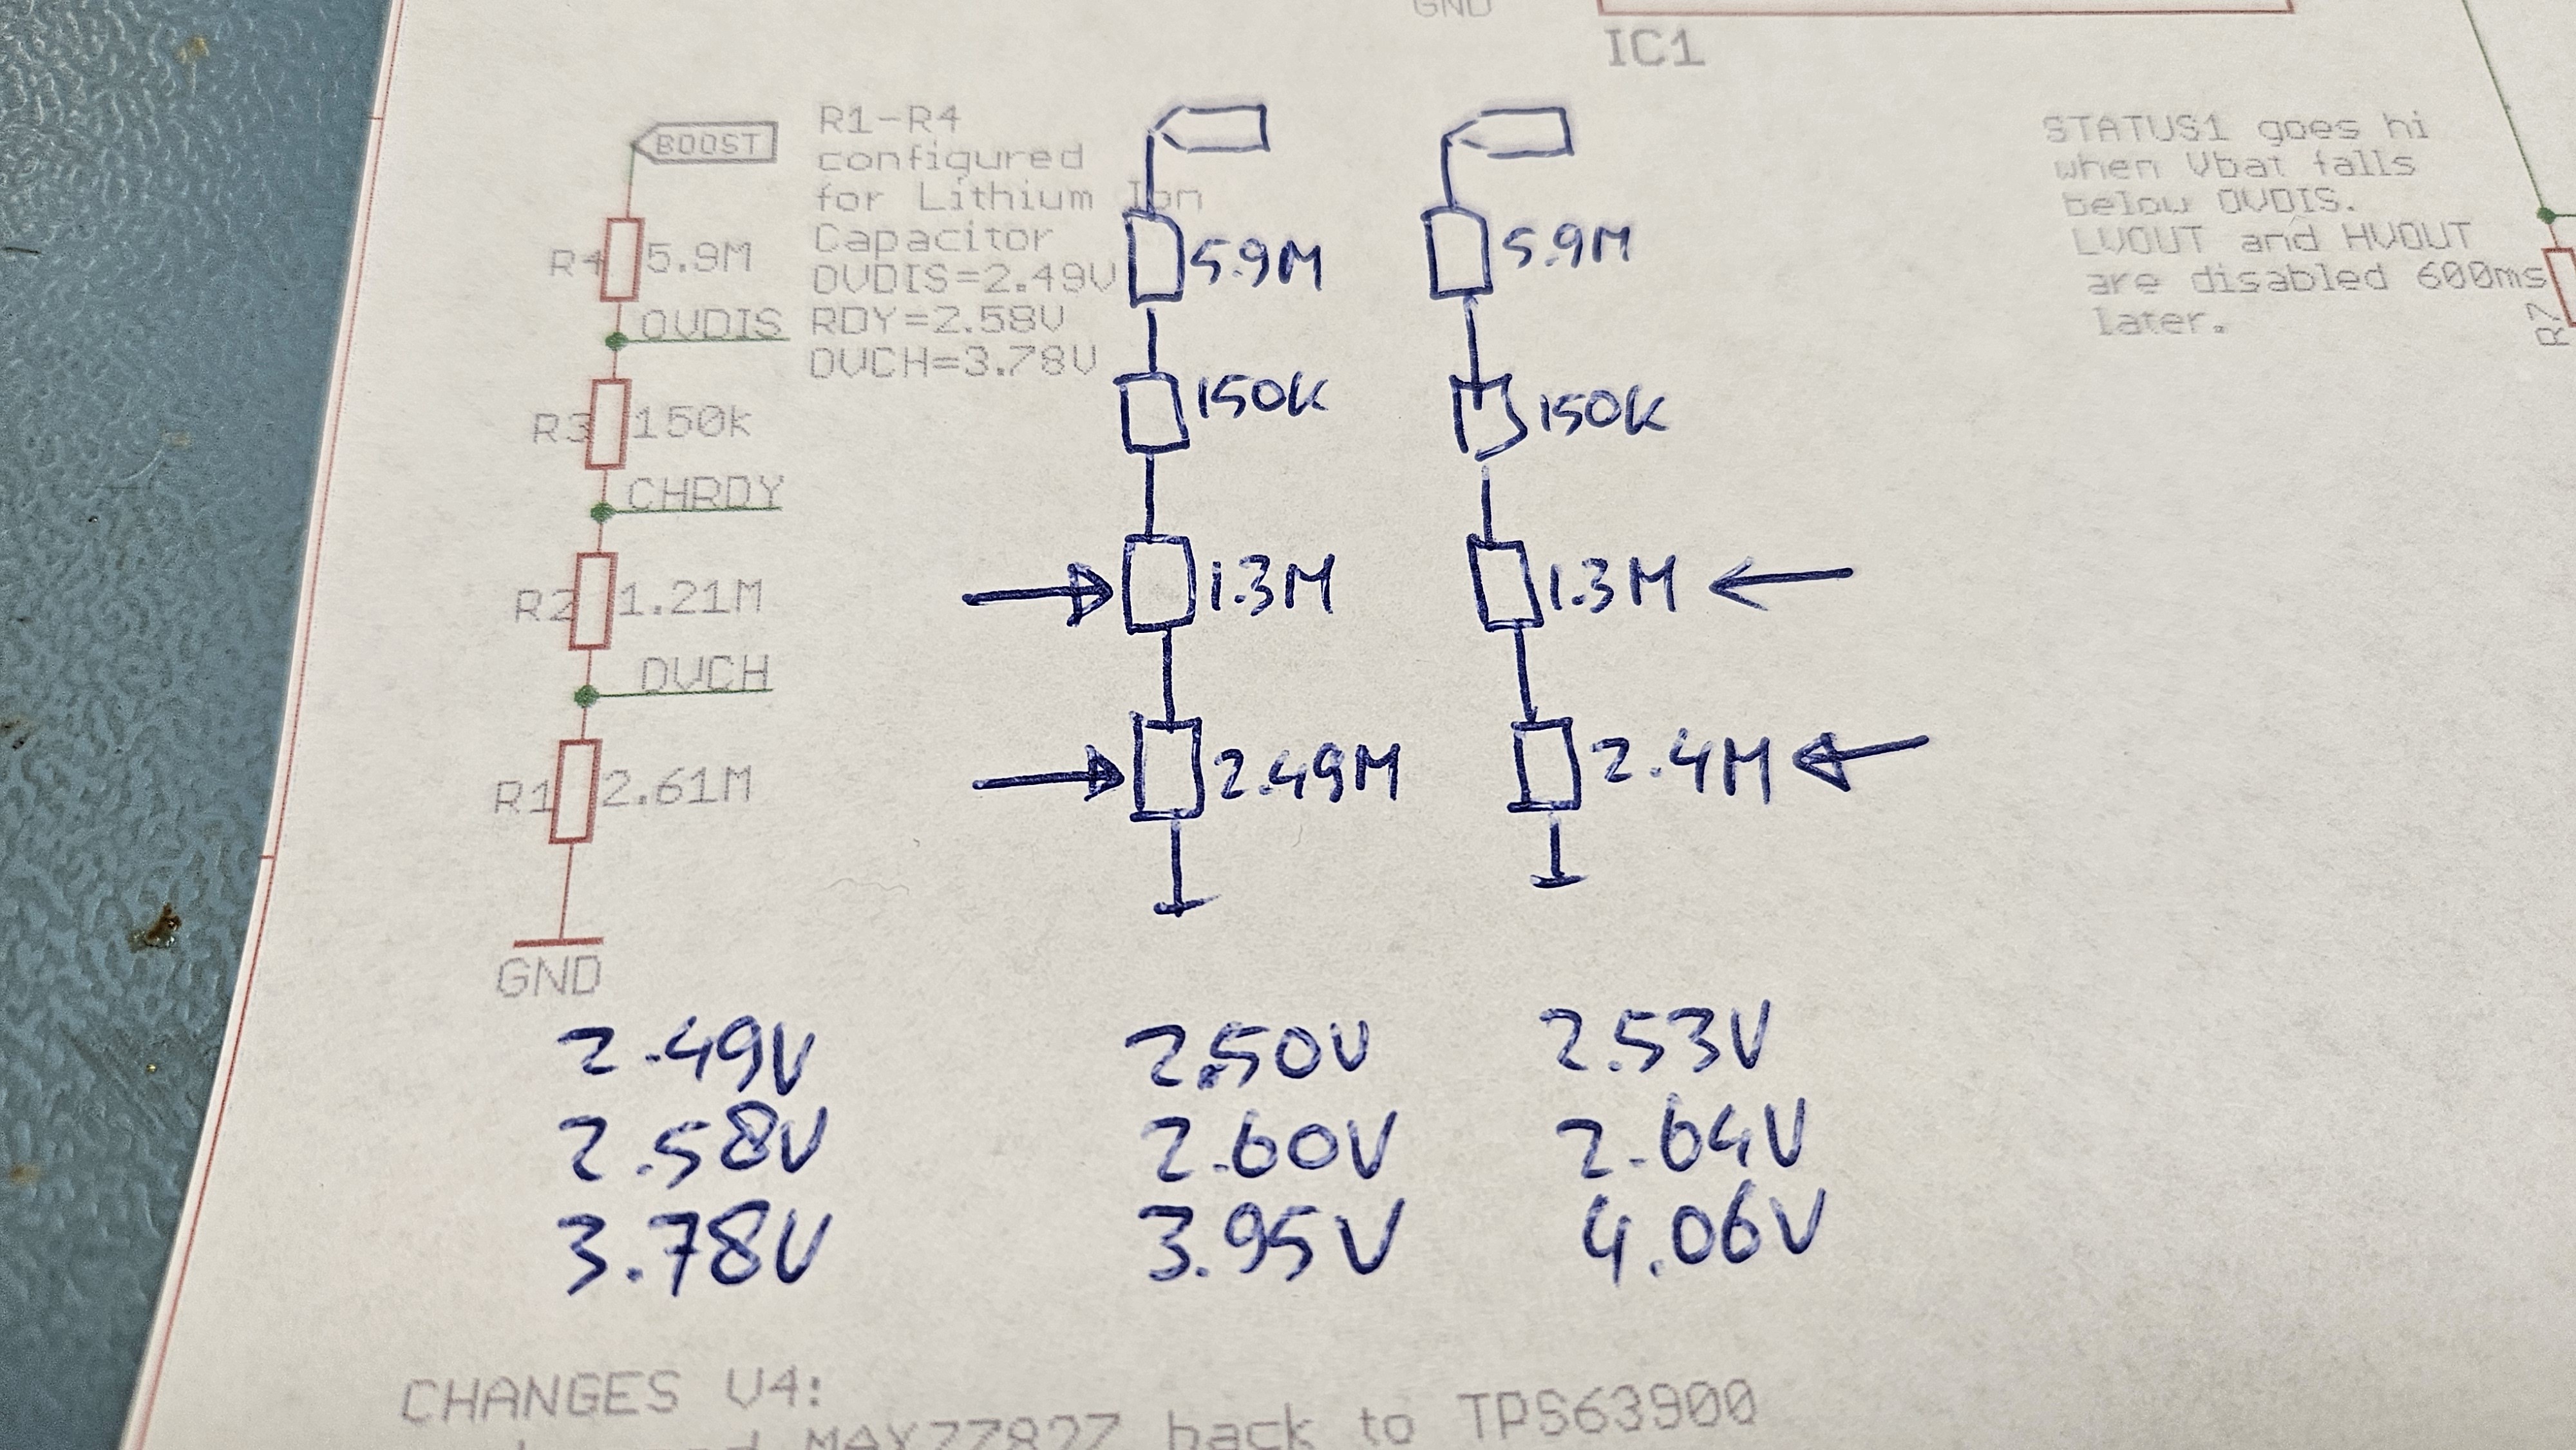 GND
IC1
BOOST
R1-R4
configured
for Lithium Ion
Capacitor
OVDIS=2.49V
RDY=2.58V
OVCH=3.78V
R4 5.9M
OVDIS
R3 150k
CHRDY
R2 1.21M
OVCH
R1 2.61M
GND
5.9M
150K
1.3M
2.49M
5.9M
150K
1.3M
2.4M
STATUS1 goes hi
when Vbat falls
below OVDIS.
LVOUT and HVOUT
are disabled 600ms
later.
R7
2.49V
2.58V
3.78V
2.50V
2.60V
3.95V
2.53V
2.64V
4.06V
CHANGES V4:
MAX77827 back to TPS63900